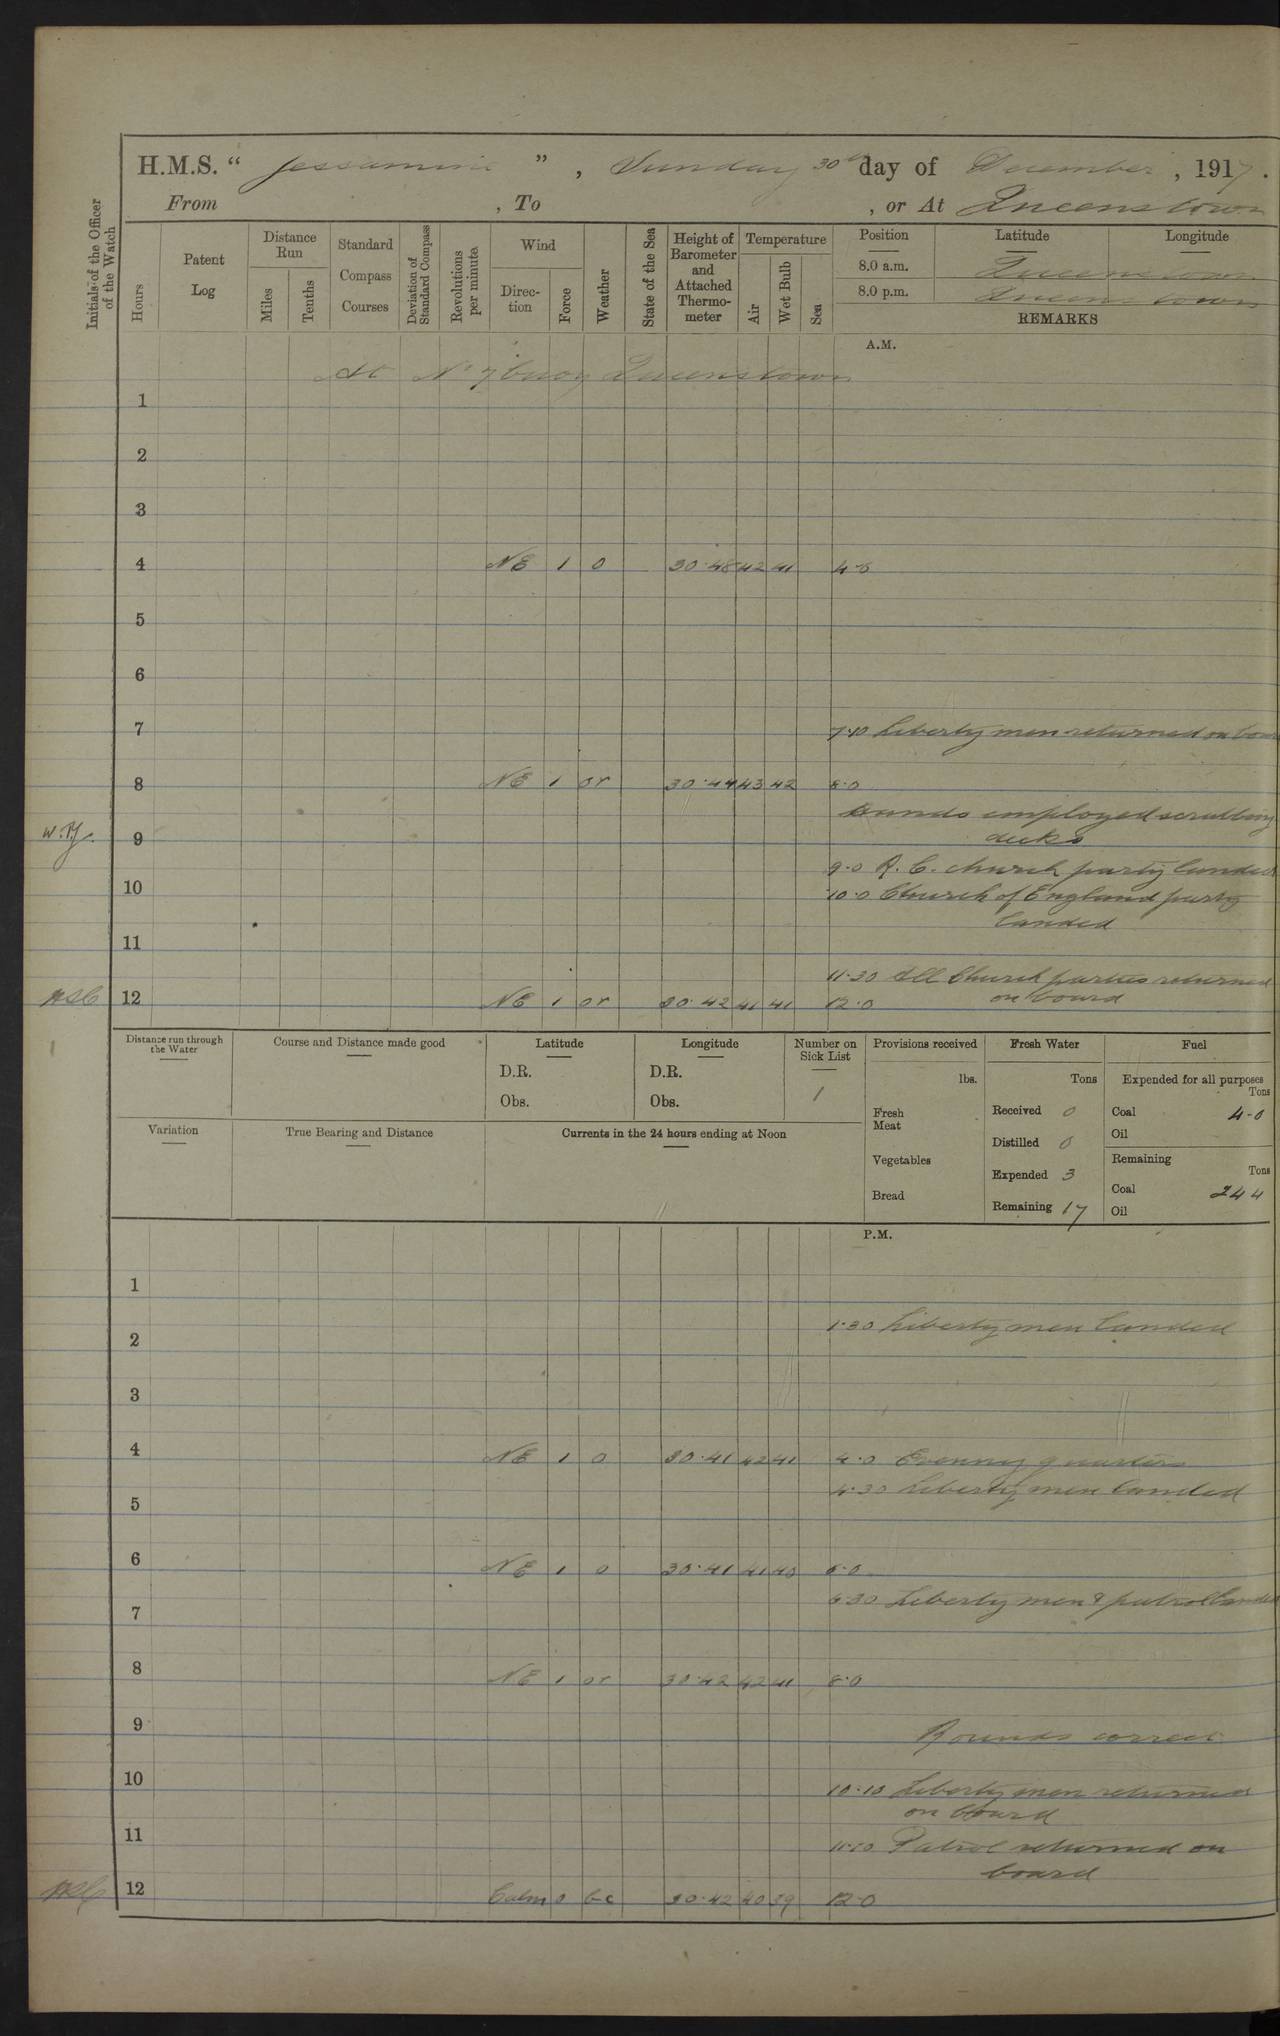 H.M.S. “ Jessamine ” , Sunday 30th day of December , 1917 .
From , To , or At Queenstown
Initials of the Officer of the Watch
Hours
Patent Log
Distance Run
Miles
Tenths
Standard Compass Courses
Deviation of Standard Compass
Revolutions per minute
Wind
Direction
Force
Weather
State of the Sea
Height of Barometer and Attached Thermometer
Temperature
Air
Wet Bulb
Sea
Position Latitude Longitude
8.0 a.m. Queenstown
8.0 p.m. Queenstown
REMARKS
A.M.
At No 7 buoy Queenstown
1
2
3
4 NE 1 o 30.48 42 41 4.0
5
6
7 7.10 Liberty men returned on board
8 NE 1 or 30.44 43 42 8.0
Hands employed scrubbing
9 decks
9.0 R.C. church party landed
10 10.0 Church of England party
landed
11
11.30 All Church parties returned
12 NE 1 or 30.42 41 41 12.0 on board
Distance run through the Water
Course and Distance made good
Latitude
D.R.
Obs.
Longitude
D.R.
Obs.
Number on Sick List
1
Provisions received
lbs.
Fresh Meat
Vegetables
Bread
Fresh Water
Tons
Received 0
Distilled 0
Expended 3
Remaining 17
Fuel
Expended for all purposes
Tons
Coal 4.0
Oil
Remaining
Tons
Coal 244
Oil
Variation
True Bearing and Distance
Currents in the 24 hours ending at Noon
P.M.
1
1.30 Liberty men landed
2
3
4 NE 1 o 30.41 42 41 4.0 Evening quarters
4.30 Liberty men landed
5
6 NE 1 o 30.41 41 40 6.0
6.30 Liberty men & patrol landed
7
8 NE 1 or 30.42 42 41 8.0
9 Rounds correct
10 10.10 Liberty men returned
on board
11 11.10 Patrol returned on
board
12 Calm 0 bc 30.42 40 39 12.0